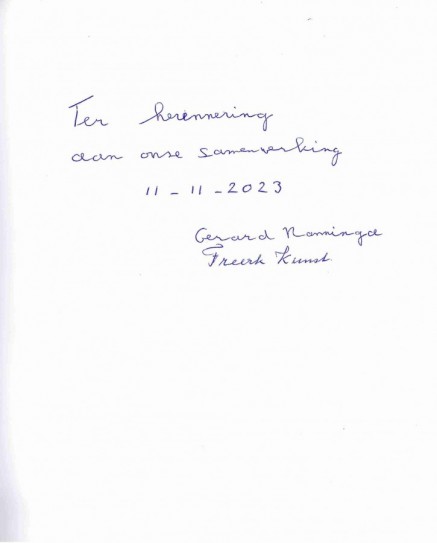 Ter herennering
aan onse samenwerking
11 - 11 - 2023
Gerard Nanninga
Freerk Kunst